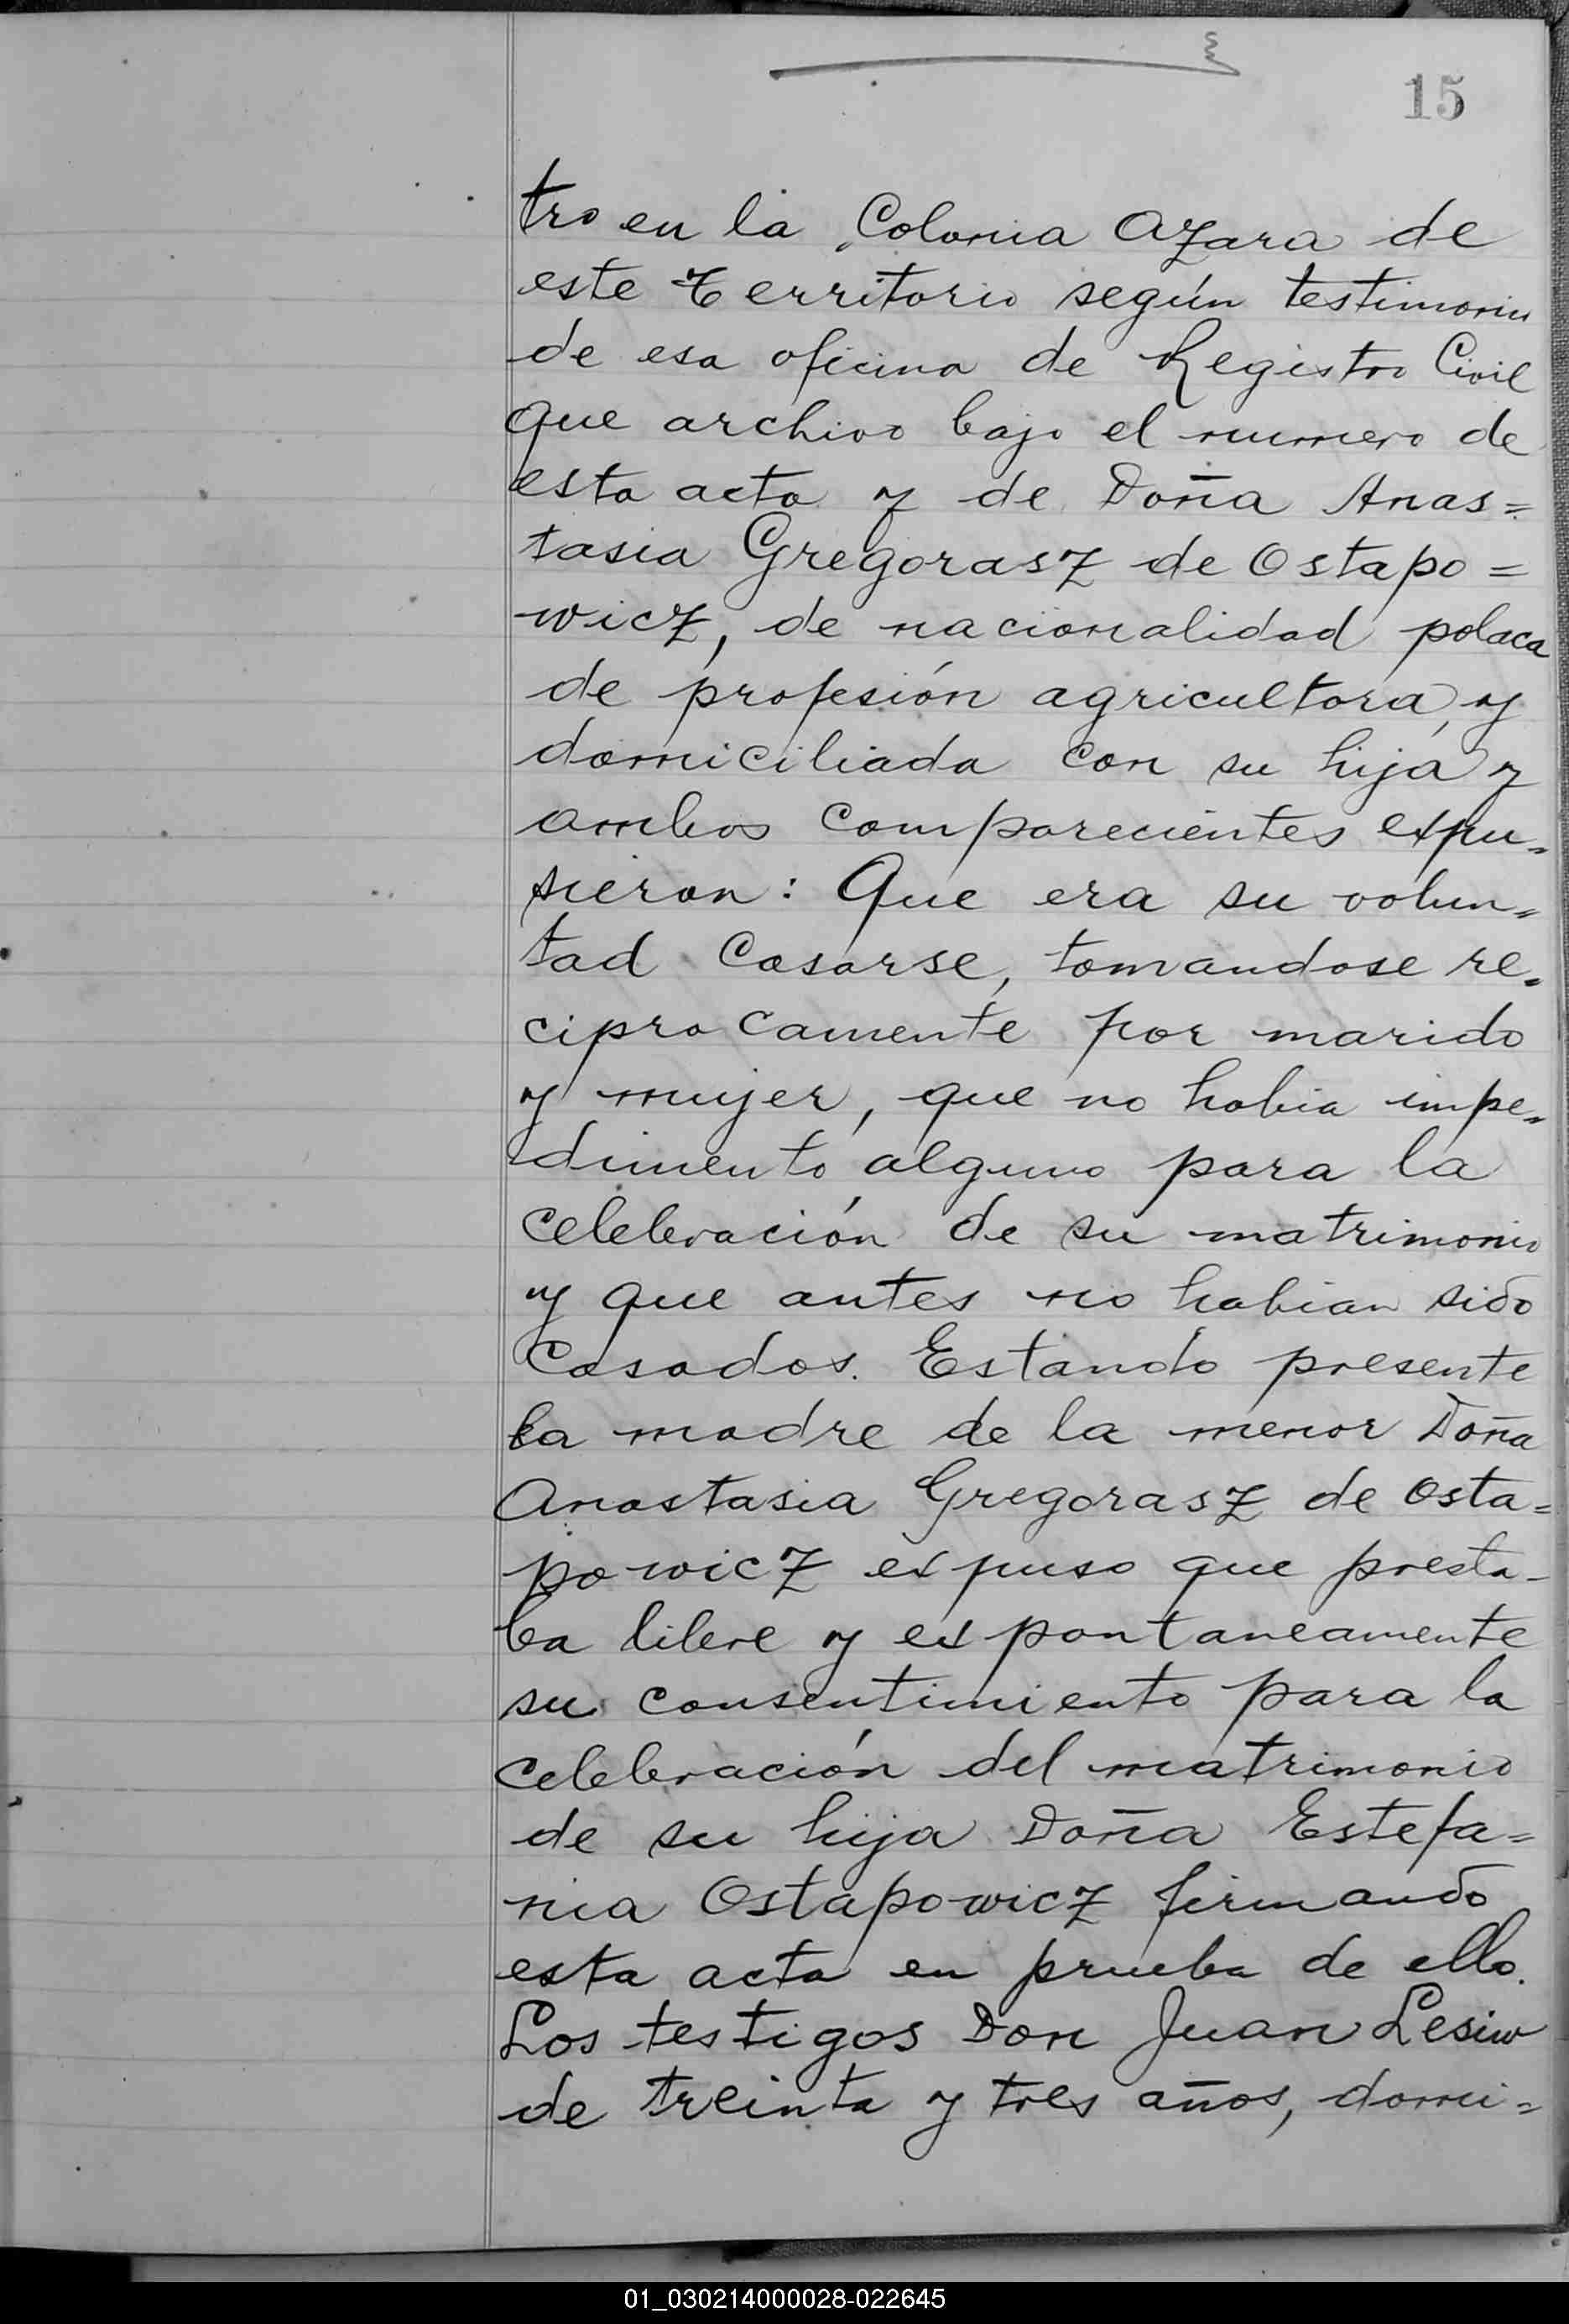 15
tro en la Colonia Azara de
este Territorio según testimonio
de esa oficina de Registro Civil
que archivo bajo el numero de
esta acta y de Doña Anas=
tasia Gregorasz de Ostapo=
wicz, de nacionalidad polaca
de profesión agricultora, y
domiciliada con su hija y
ambos comparecientes expu=
sieron: Que era su volun=
tad casarse, tomandose re=
ciprocamente por marido
y mujer, que no habia impe=
dimento alguno para la
celebración de su matrimonio
y que antes no habian sido
casados. Estando presente
la madre de la menor Doña
Anastasia Gregorasz de Osta=
powicz expuso que presta-
ba libre y expontaneamente
su consentimiento para la
celebración del matrimonio
de su hija Doña Estefa=
nia Ostapowicz firmando
esta acta en prueba de ello.
Los testigos Don Juan Lesiw
de treinta y tres años, domi=
01_030214000028-022645